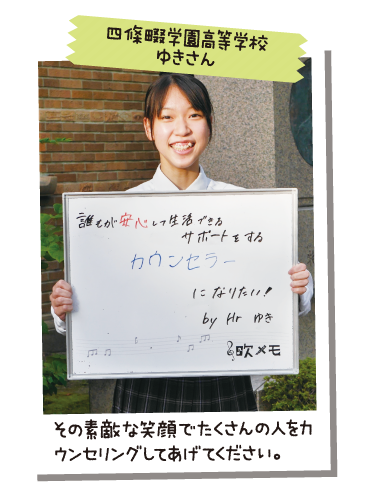 四條畷学園高等学校
ゆきさん
誰もが安心して生活できる
サポートをする
カウンセラー
になりたい!
by Hr ゆき
歌メモ
その素敵な笑顔でたくさんの人をカ
ウンセリングしてあげてください。